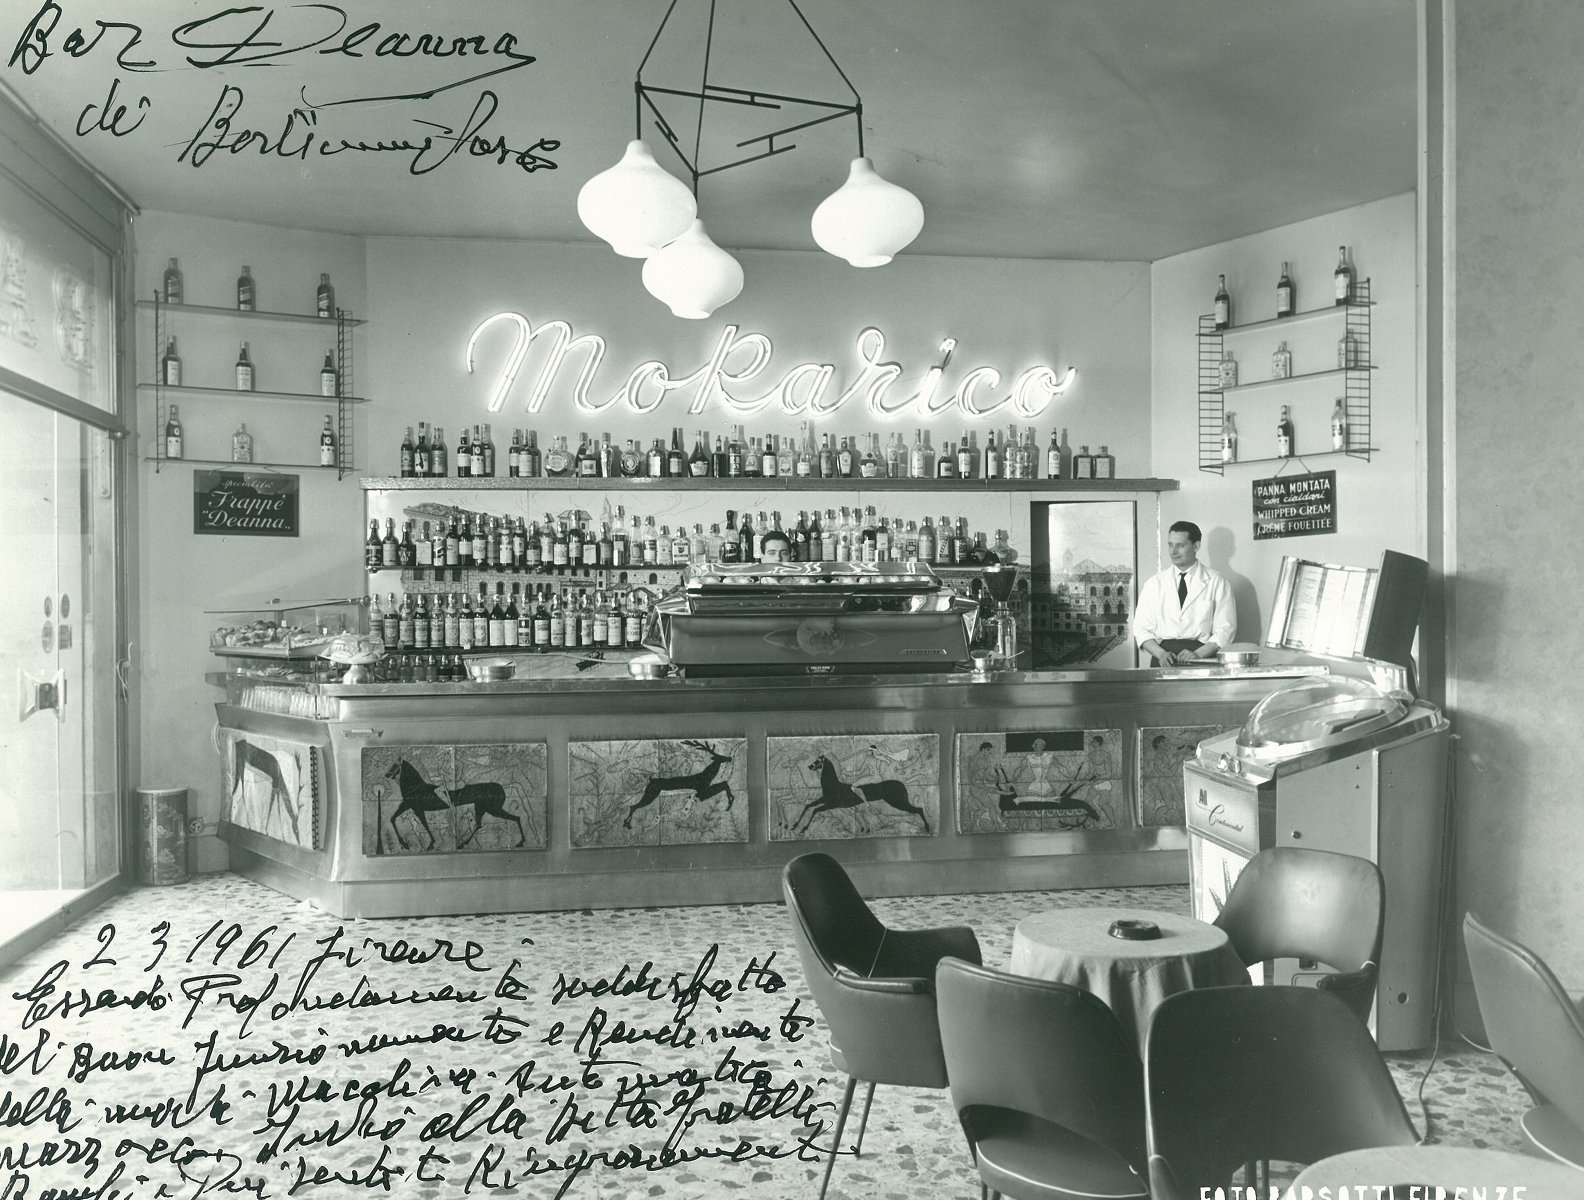 Bar Deanna
di
Mokarico
specialità
Frappè
"Deanna„
PANNA MONTATA
con cialdoni
WHIPPED CREAM
CRÈME FOUETTÉE
Continental
2 3 1961 Firenze
Essendo Profondamente soddisfatto
del Buon Funzionamento e Rendimento
della macchina Automatica
marzocco, Invio alla Ditta Fratelli
Bambi i Più Sentiti Ringraziamenti
FOTO BARSOTTI FIRENZE